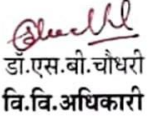 डॉ.एस.बी.चौधरी
वि.वि.अधिकारी